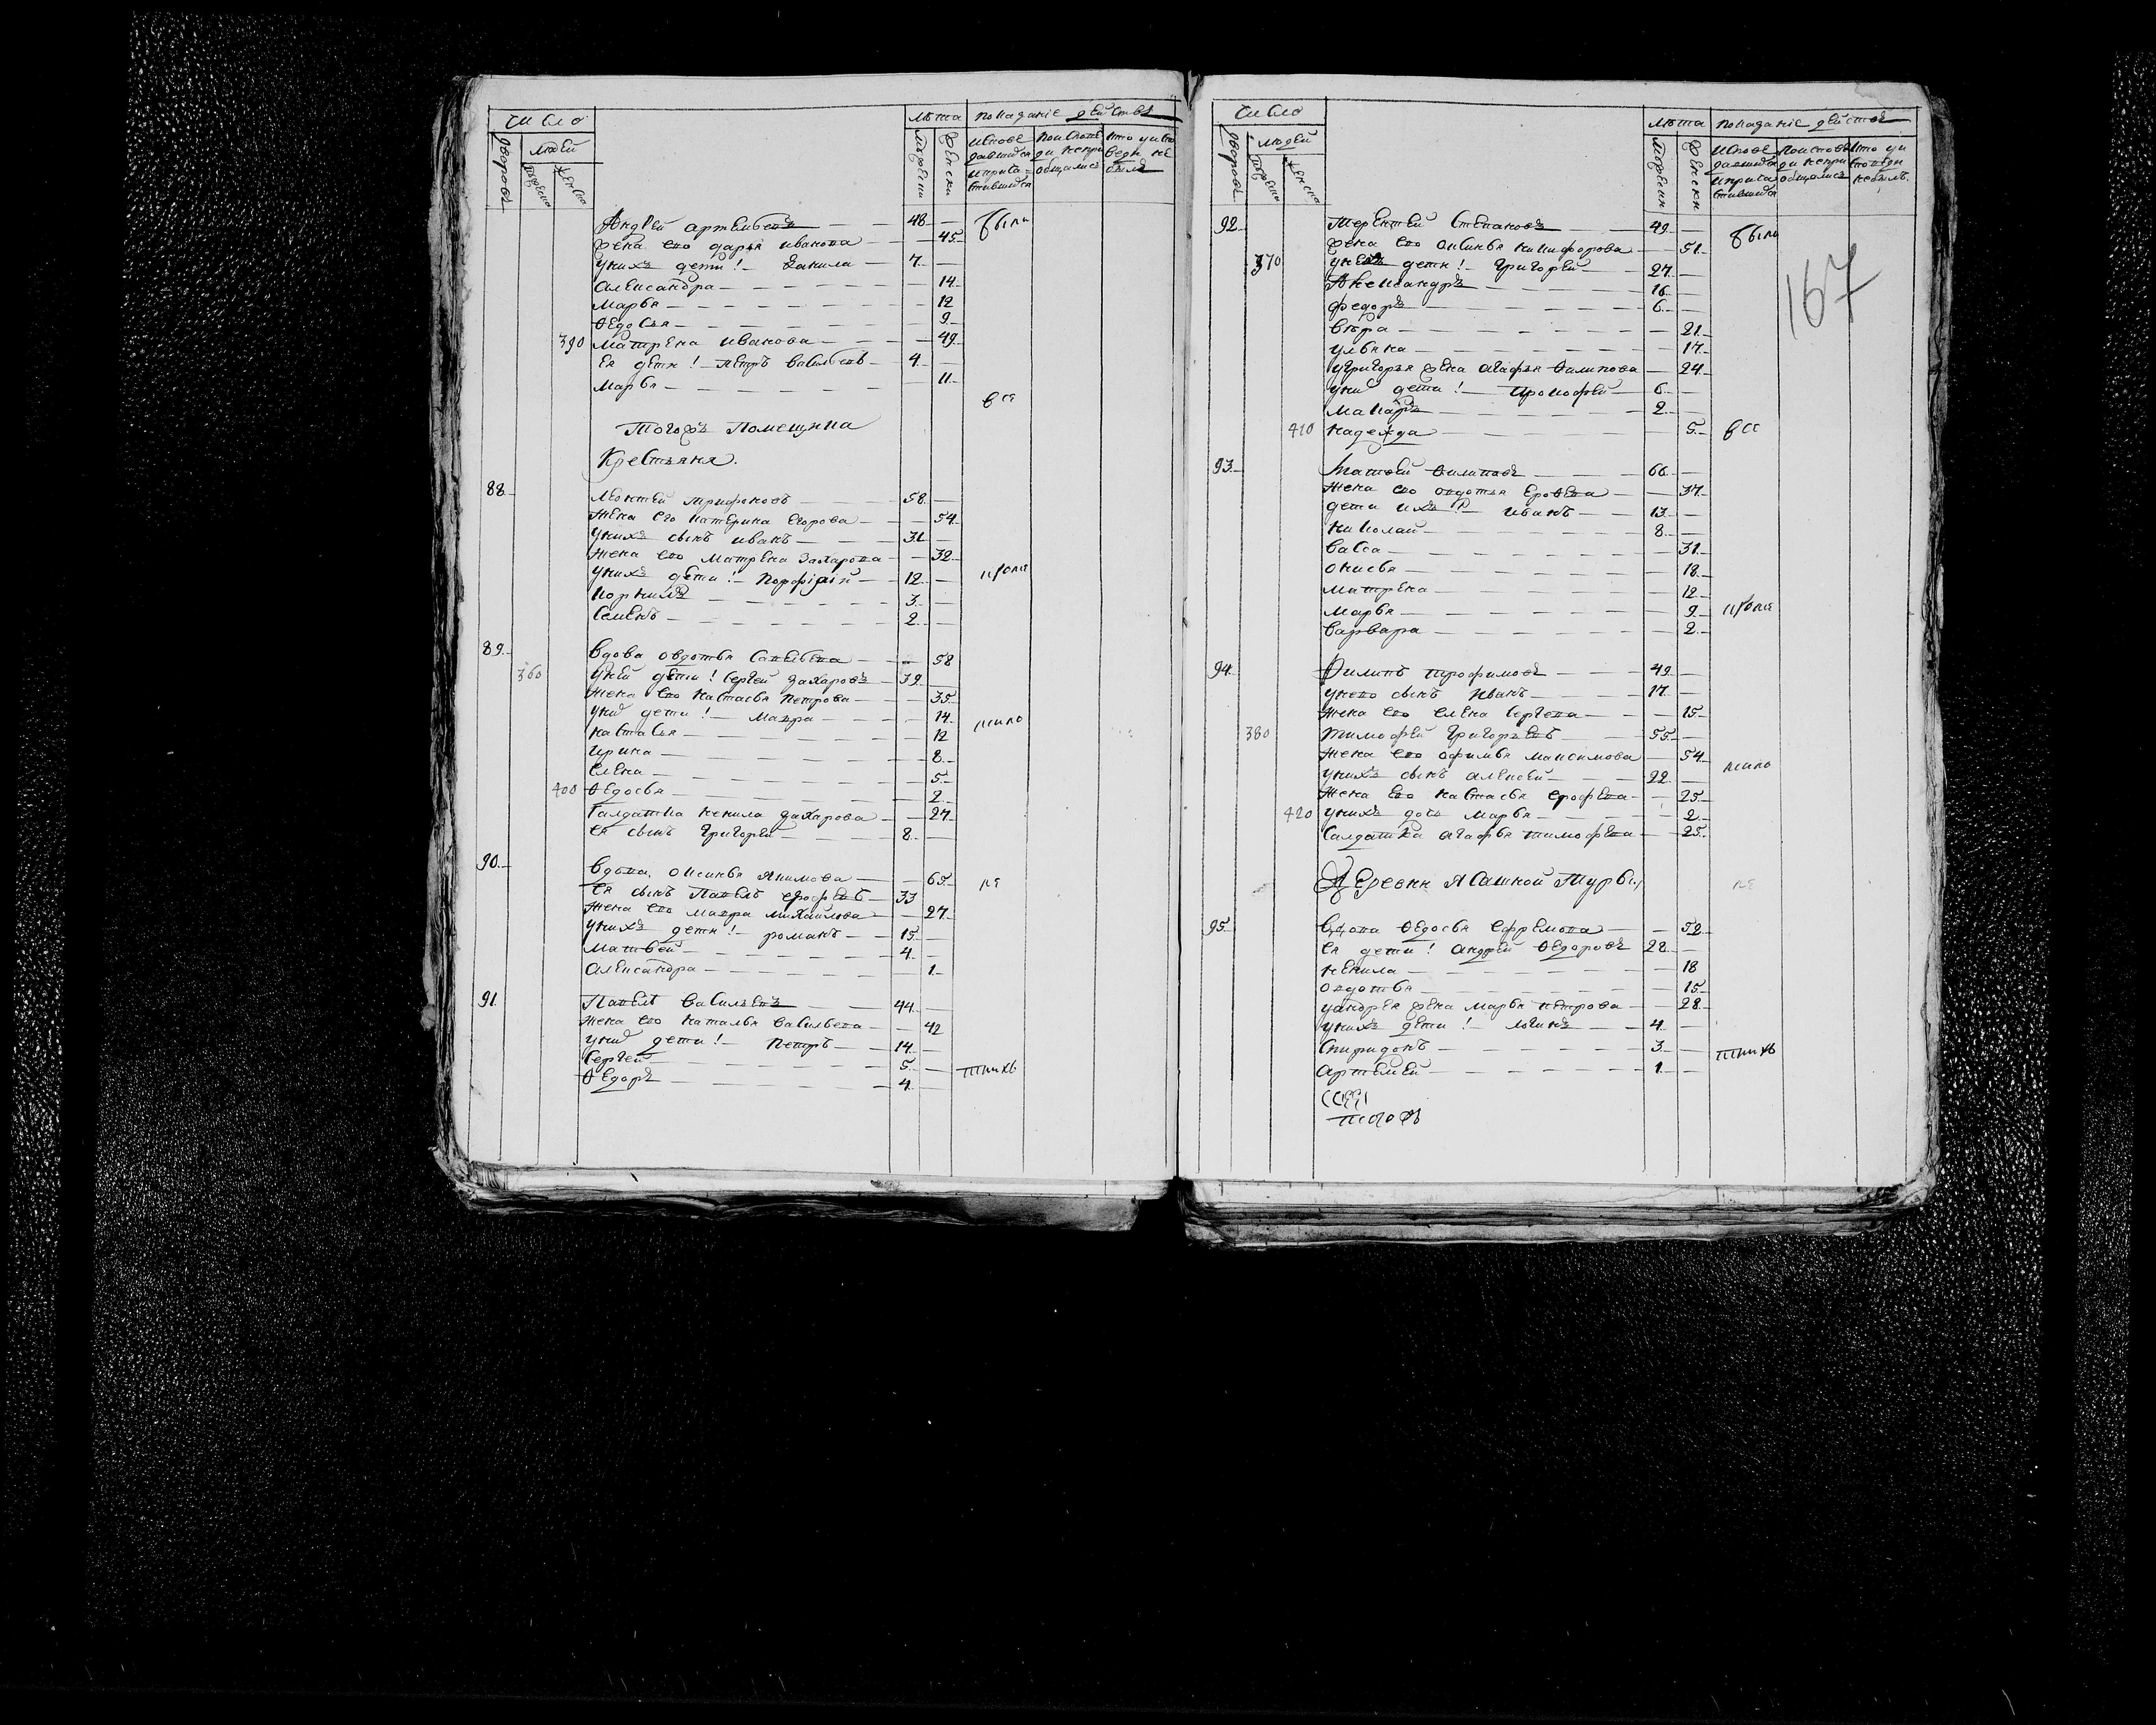 число
людей
лѣта
показанiе действа
дворовъ
мужеска
женска
мужески
женски
исповедавшихся и причастившихся
Андрей Артемьевъ 48 были
жена ево Дарья Иванова 45
у нихъ дети! Данила 7
Александра 14
Марья 12
Ѳедосья 9
390 Матрена Иванова 49
ея дети! Петръ Васильевъ 4
Марья 11
все
Тогожъ Помещика
Крестьяня.
88 Леонтей Трифоновъ 58
жена его Катерина Егорова 54
у нихъ сынъ Иванъ 31
жена ево Матрена Захарова 32
у нихъ дети! Порфирiй 12
Корнилъ 3
Семенъ 2
89 вдова Овдотья Савельева 58
360 у ней дети! Сергей Захаровъ 39
жена ево Настасья Петрова 35
у них дети! Мавра 14
Настасья 12
Ирина 8
Елена 5
400 Ѳедосья 2
Салдатка Ненила Захарова 27
ея сынъ Григорей 8
90 вдова Оксинья Акимова 65 не
ея сынъ Павелъ Ерофеевъ 33
жена ево Мавра Михайлова 27
у нихъ дети! Романъ 15
Матвей 4
Александра 1
91 Павелъ Васильевъ 44
жена ево Наталья Васильева 42
у них дети! Петръ 14
Сергей 5
Ѳедоръ 4
число
людей
лѣта
показанiе действа
дворовъ
мужеска
женска
мужески
женски
167
92 Терентей Степановъ 49 были
жена ево Оксинья Никифорова 51
370 у нихъ дети! Григорей 27
Александръ 16
Федоръ 6
Вѣра 21
Ульяна 17
у Григорья жена Агафья Филипова 24
у них дети! Прокофей 6
Макаръ 2
410 Надежда 5 все
93 Матвей Филиповъ 66
жена ево Овдотья Ерофеева 37
дети ихъ Иванъ 13
Николай 8
Васса 31
Онисья 18
Матрена 12
Марья 9
Варвара 2
94 Филипъ Трофимовъ 49
у нево сынъ Иванъ 17
жена ево Елена Сергеева 15
380 Тимофей Григорьевъ 55
жена ево Офимья Максимова 54
у нихъ сынъ Алексей 22
жена ево Настасья Ерофеева 25
420 у нихъ дочь Марья 2
Салдатка Агафья Тимофеева 25
Деревни Ясашной Турбы не
95 вдова Ѳедосья Ефремова 52
ея дети! Андрей Ѳедоровъ 22
Ненила 18
Овдотья 15
у Андрея жена Марья Петрова 28
у нихъ дети! Логинъ 4
Спиридонъ 3
Артемей 1